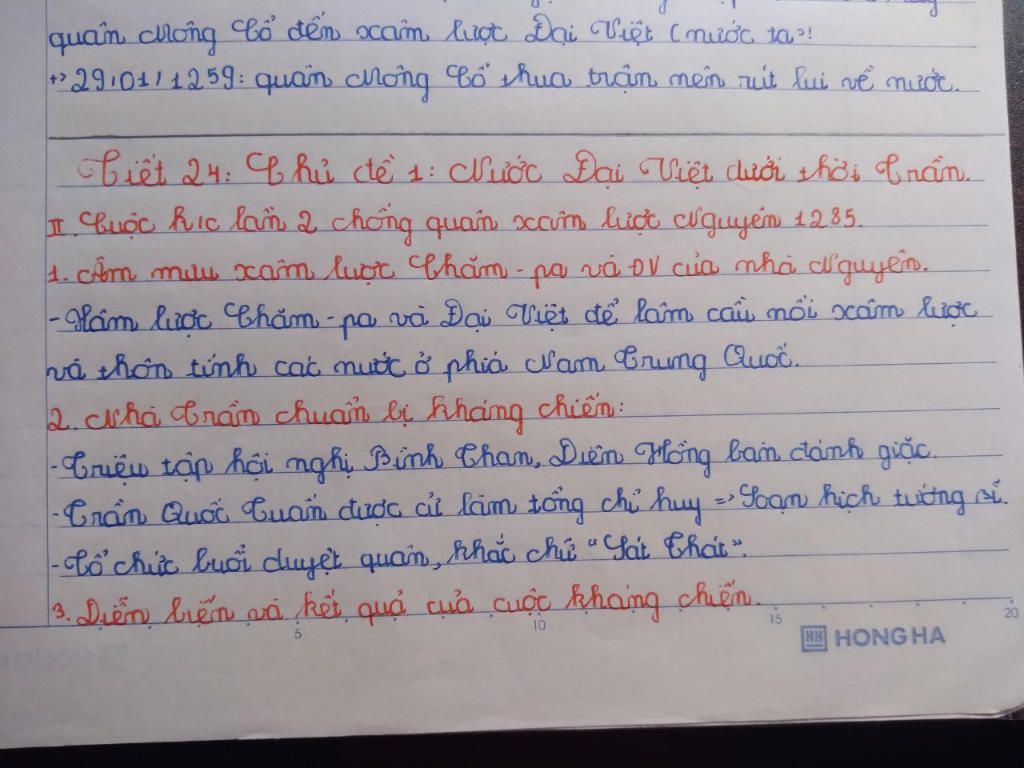 quân Mông Cổ đến xâm lược Đại Việt (nước ta)!
+) 29/01/1258: quân Mông Cổ thua trận nên rút lui về nước.
Tiết 24: Chủ đề 1: Nước Đại Việt dưới thời Trần.
II. Cuộc k/c lần 2 chống quân xâm lược Nguyên 1285.
1. Âm mưu xâm lược Chăm-pa và ĐV của nhà Nguyên.
-Xâm lược Chăm-pa và Đại Việt để làm cầu nối xâm lược
và thôn tính các nước ở phía Nam Trung Quốc.
2. Nhà Trần chuẩn bị kháng chiến:
-Triệu tập hội nghị Bình Than, Diên Hồng bàn đánh giặc.
-Trần Quốc Tuấn được cử làm tổng chỉ huy => Soạn hịch tướng sĩ.
-Tổ chức buổi duyệt quân, khắc chữ "Sát Thát".
3. Diễn biến và kết quả của cuộc kháng chiến.
5 10 15 20
HONG HA